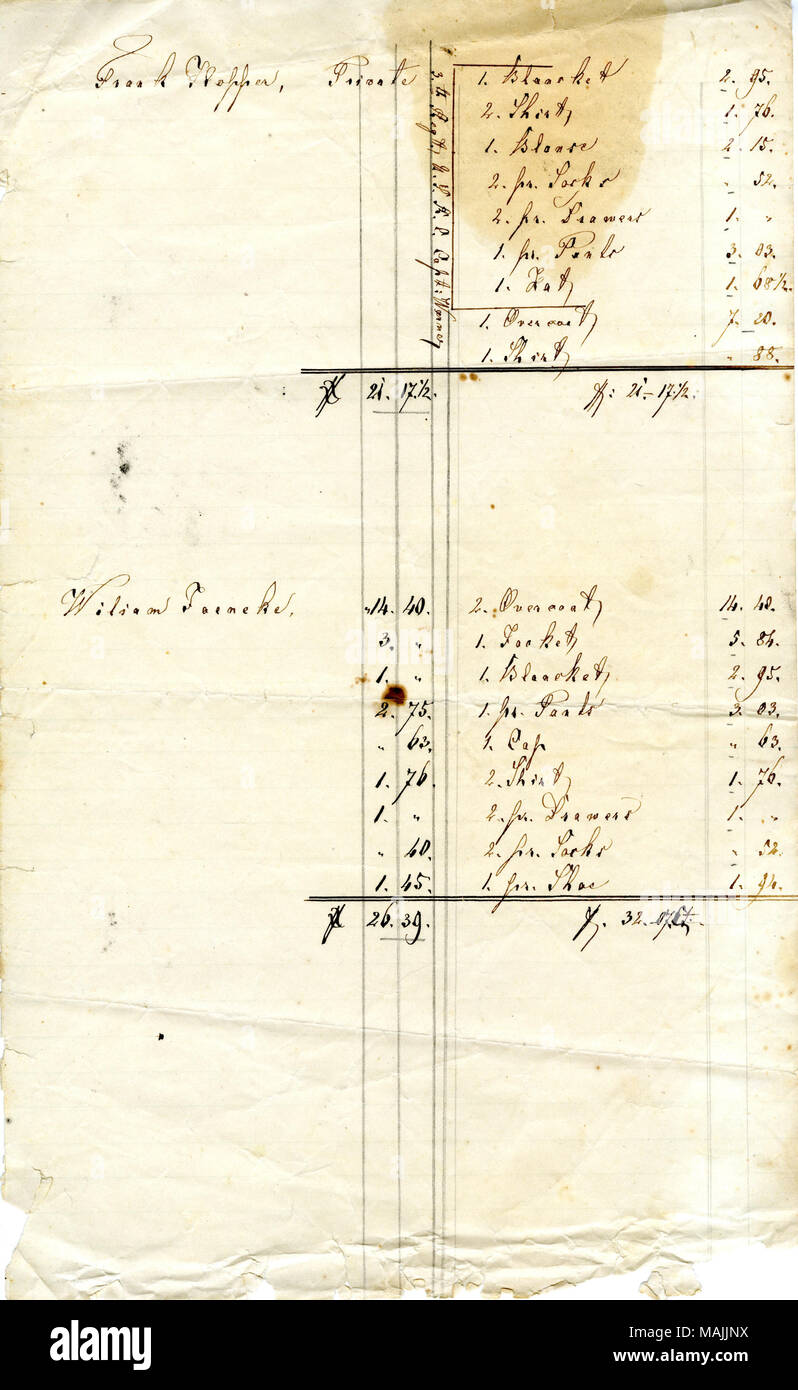 Frank Hopper, Private 1. Blancket 2. 95.
2. Shirt, 1. 76.
1. Blouse 2. 15.
2. pr. Socks „ 52.
2. pr. Drawers 1. „
1. pr. Pants 3. 03.
1. Hat, 1. 68½.
1. Overcoat, 7. 20.
1. Shirt, „ 88.
3th Regt, Capt:
21. 17½. $: 21-17½.
Wiliam Faeneke, „14. 40. 2. Overcoat, 14. 40.
3. „ 1. Jacket, 5. 84.
1. „ 1. Blancket, 2. 95.
2. 75. 1. pr. Pants 3. 03.
„ 63. 1. Cap „ 63.
1. 76. 2. Shirt, 1. 76.
1. „ 2. pr. Drawers 1. „
„ 40. 2. pr. Socks „ 52.
1. 45. 1. pr. Shoe 1. 94.
26. 39. $. 32.
alamy
Image ID: MAJJNX
www.alamy.com